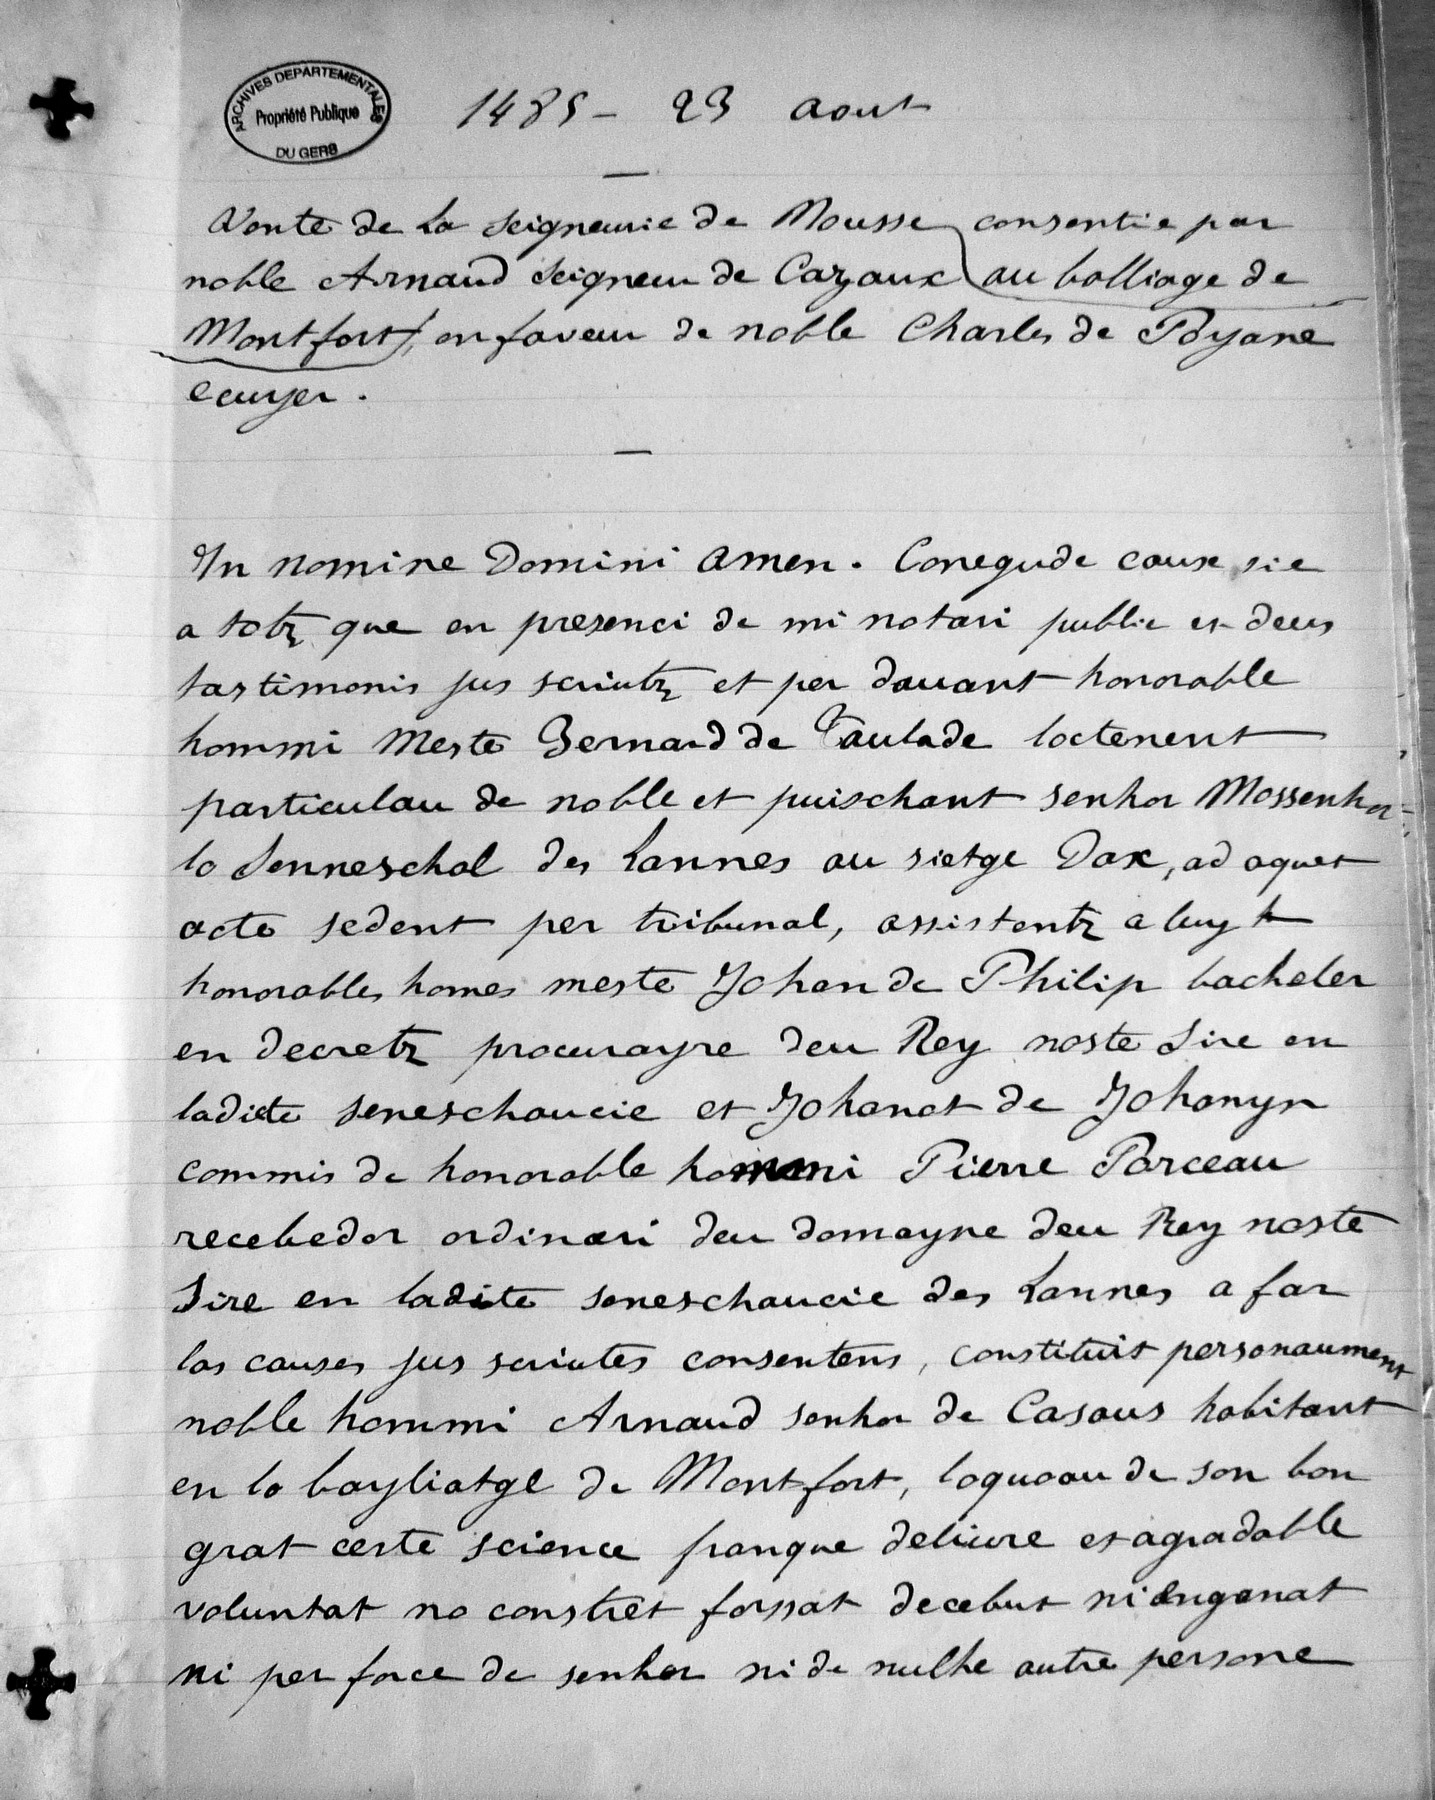 ARCHIVES DEPARTEMENTALES
Propriété Publique
DU GERS
1485 - 23 aout
Vente de la seigneurie de Mousse consentie par
noble Arnaud seigneur de Cazaux (au balliage de
Montfort), en faveur de noble Charles de Poyane
ecuyer.
In nomine Domini amen. Conegude cause sie
a totz que en presenci de mi notari public et deus
tastimonis jus scriutz et per dauant honorable
hommi Meste Bernard de Taulade loctenent
particulau de noble et puischant senhor Mossenhor
lo Senneschal des Lannes au sietge Dax, ad aquet
acte sedent per tribunal, assistentz a luy
honorables homes meste Johan de Philip bacheler
en decretz procurayre deu Rey noste Sire en
ladicte seneschaucie et Johanot de Johanyn
commis de honorable hommi Pierre Parceau
recebedor ordinari deu domayne deu Rey noste
Sire en ladite seneschaucie des Lannes a far
las causes jus scriutes consentens, constituit personaument
noble hommi Arnaud senhor de Casaus habitant
en lo bayliatge de Montfort, loquoau de son bon
grat certe science franque deliure et agradable
voluntat no constret forssat decebut ni enganat
ni per force de senhor ni de nulhe autre persone